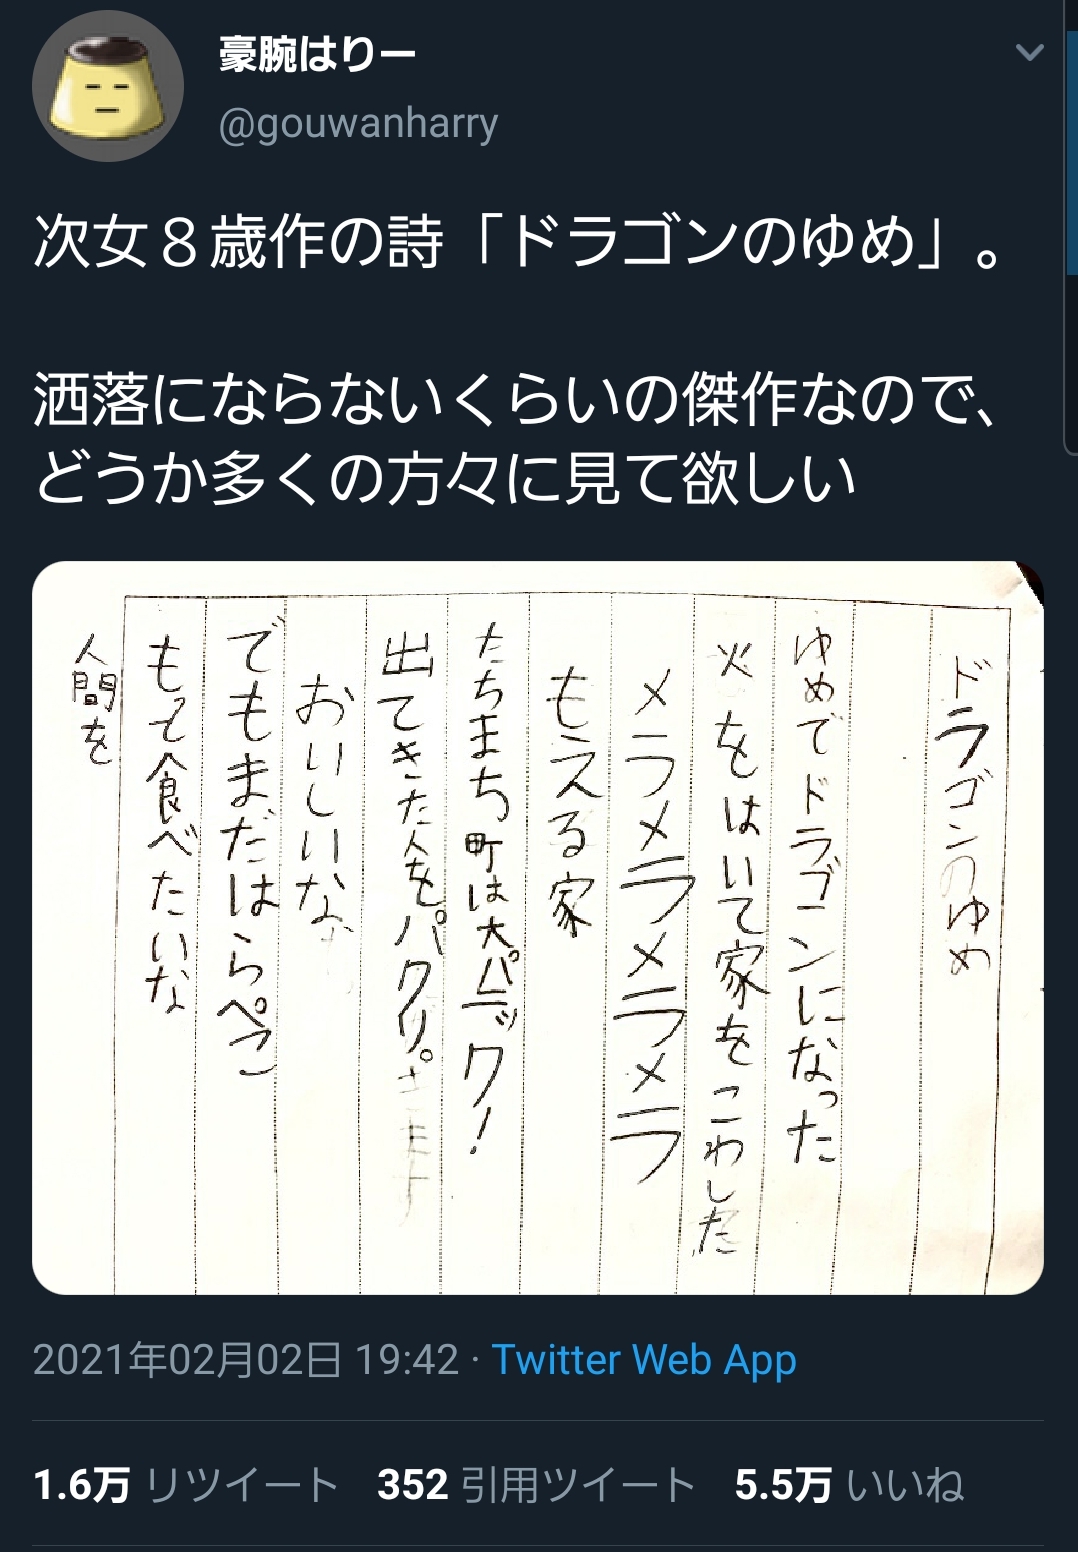 豪腕はりー
@gouwanharry
次女８歳作の詩「ドラゴンのゆめ」。
洒落にならないくらいの傑作なので、
どうか多くの方々に見て欲しい
ドラゴンのゆめ
ゆめでドラゴンになった
火をはいて家をこわした
メラメラメラメラ
もえる家
たちまち町は大パニック!
出てきた人をパクリ。
おいしいな
でもまだはらぺこ
もっと食べたいな
人間を
2021年02月02日 19:42 · Twitter Web App
1.6万 リツイート 352 引用ツイート 5.5万 いいね